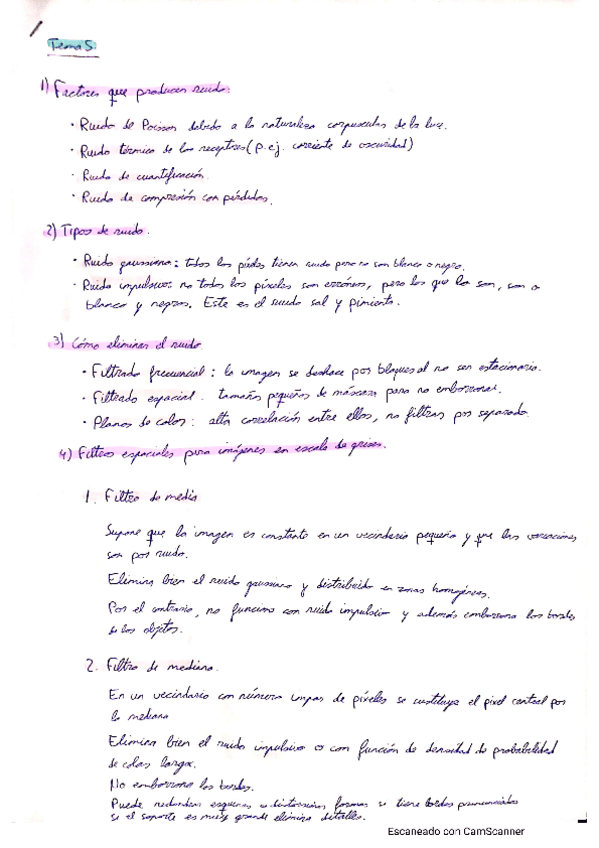 Tema 5
1) Factores que producen ruido:
· Ruido de Poisson debido a la naturaleza corpuscular de la luz.
· Ruido térmico de los receptores (p.ej. corriente de oscuridad)
· Ruido de cuantificación.
· Ruido de compresión con pérdidas.
2) Tipos de ruido.
· Ruido gaussiano: todos los píxeles tienen ruido pero no son blanco o negro.
· Ruido impulsivo: no todos los píxeles son erróneos, pero los que lo son, son o
blanco y negros. Este es el ruido sal y pimienta.
3) Cómo eliminar el ruido
· Filtrado frecuencial: la imagen se deshace por bloques al no ser estacionaria.
· Filtrado espacial. tamaños pequeños de máscara para no emborronar.
· Planos de color: alta correlación entre ellos, no filtrar por separado.
4) Filtros espaciales para imágenes en escala de grises.
1. Filtro de media
Supone que la imagen es constante en un vecindario pequeño y que las variaciones
son por ruido.
Elimina bien el ruido gaussiano y distribuido en zonas homogéneas.
Por el contrario, no funciona con ruido impulsivo y además emborrona los bordes
de los objetos.
2. Filtro de mediana.
En un vecindario con número impar de píxeles se sustituye el pixel central por
la mediana
Elimina bien el ruido impulsivo o con función de densidad de probabilidad
de colas largas.
No emborrona los bordes.
Puede redondear esquinas o distorsionar formas si tiene bordes pronunciados
si el soporte es muy grande elimina detalles.
Escaneado con CamScanner